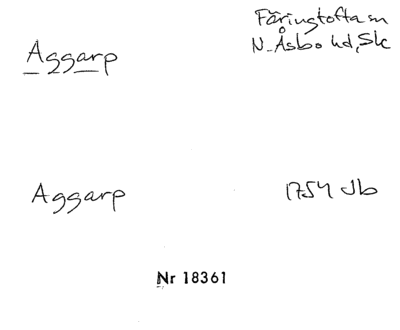 Färingtofta sn
Aggarp
N. Åsbo hd, Sk
Aggarp
1754 Jb
Nr 18361